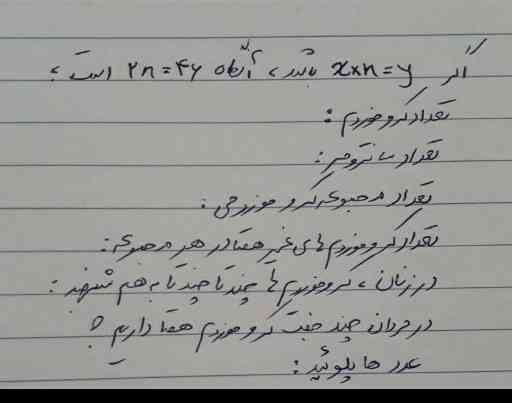 اگر x×n=y باشد، آنگاه ۲n=۴۶ است؛
تعداد کروموزوم :
تعداد سانترومر :
تعداد مجموعه کروموزومی :
تعداد کروموزوم های غیر همتا در هر مجموعه :
در زنان، کروموزوم ها چند تا چند تا به هم شبیهند :
در مردان چند جفت کروموزوم همتا داریم ؟
عدد هاپلوئید :